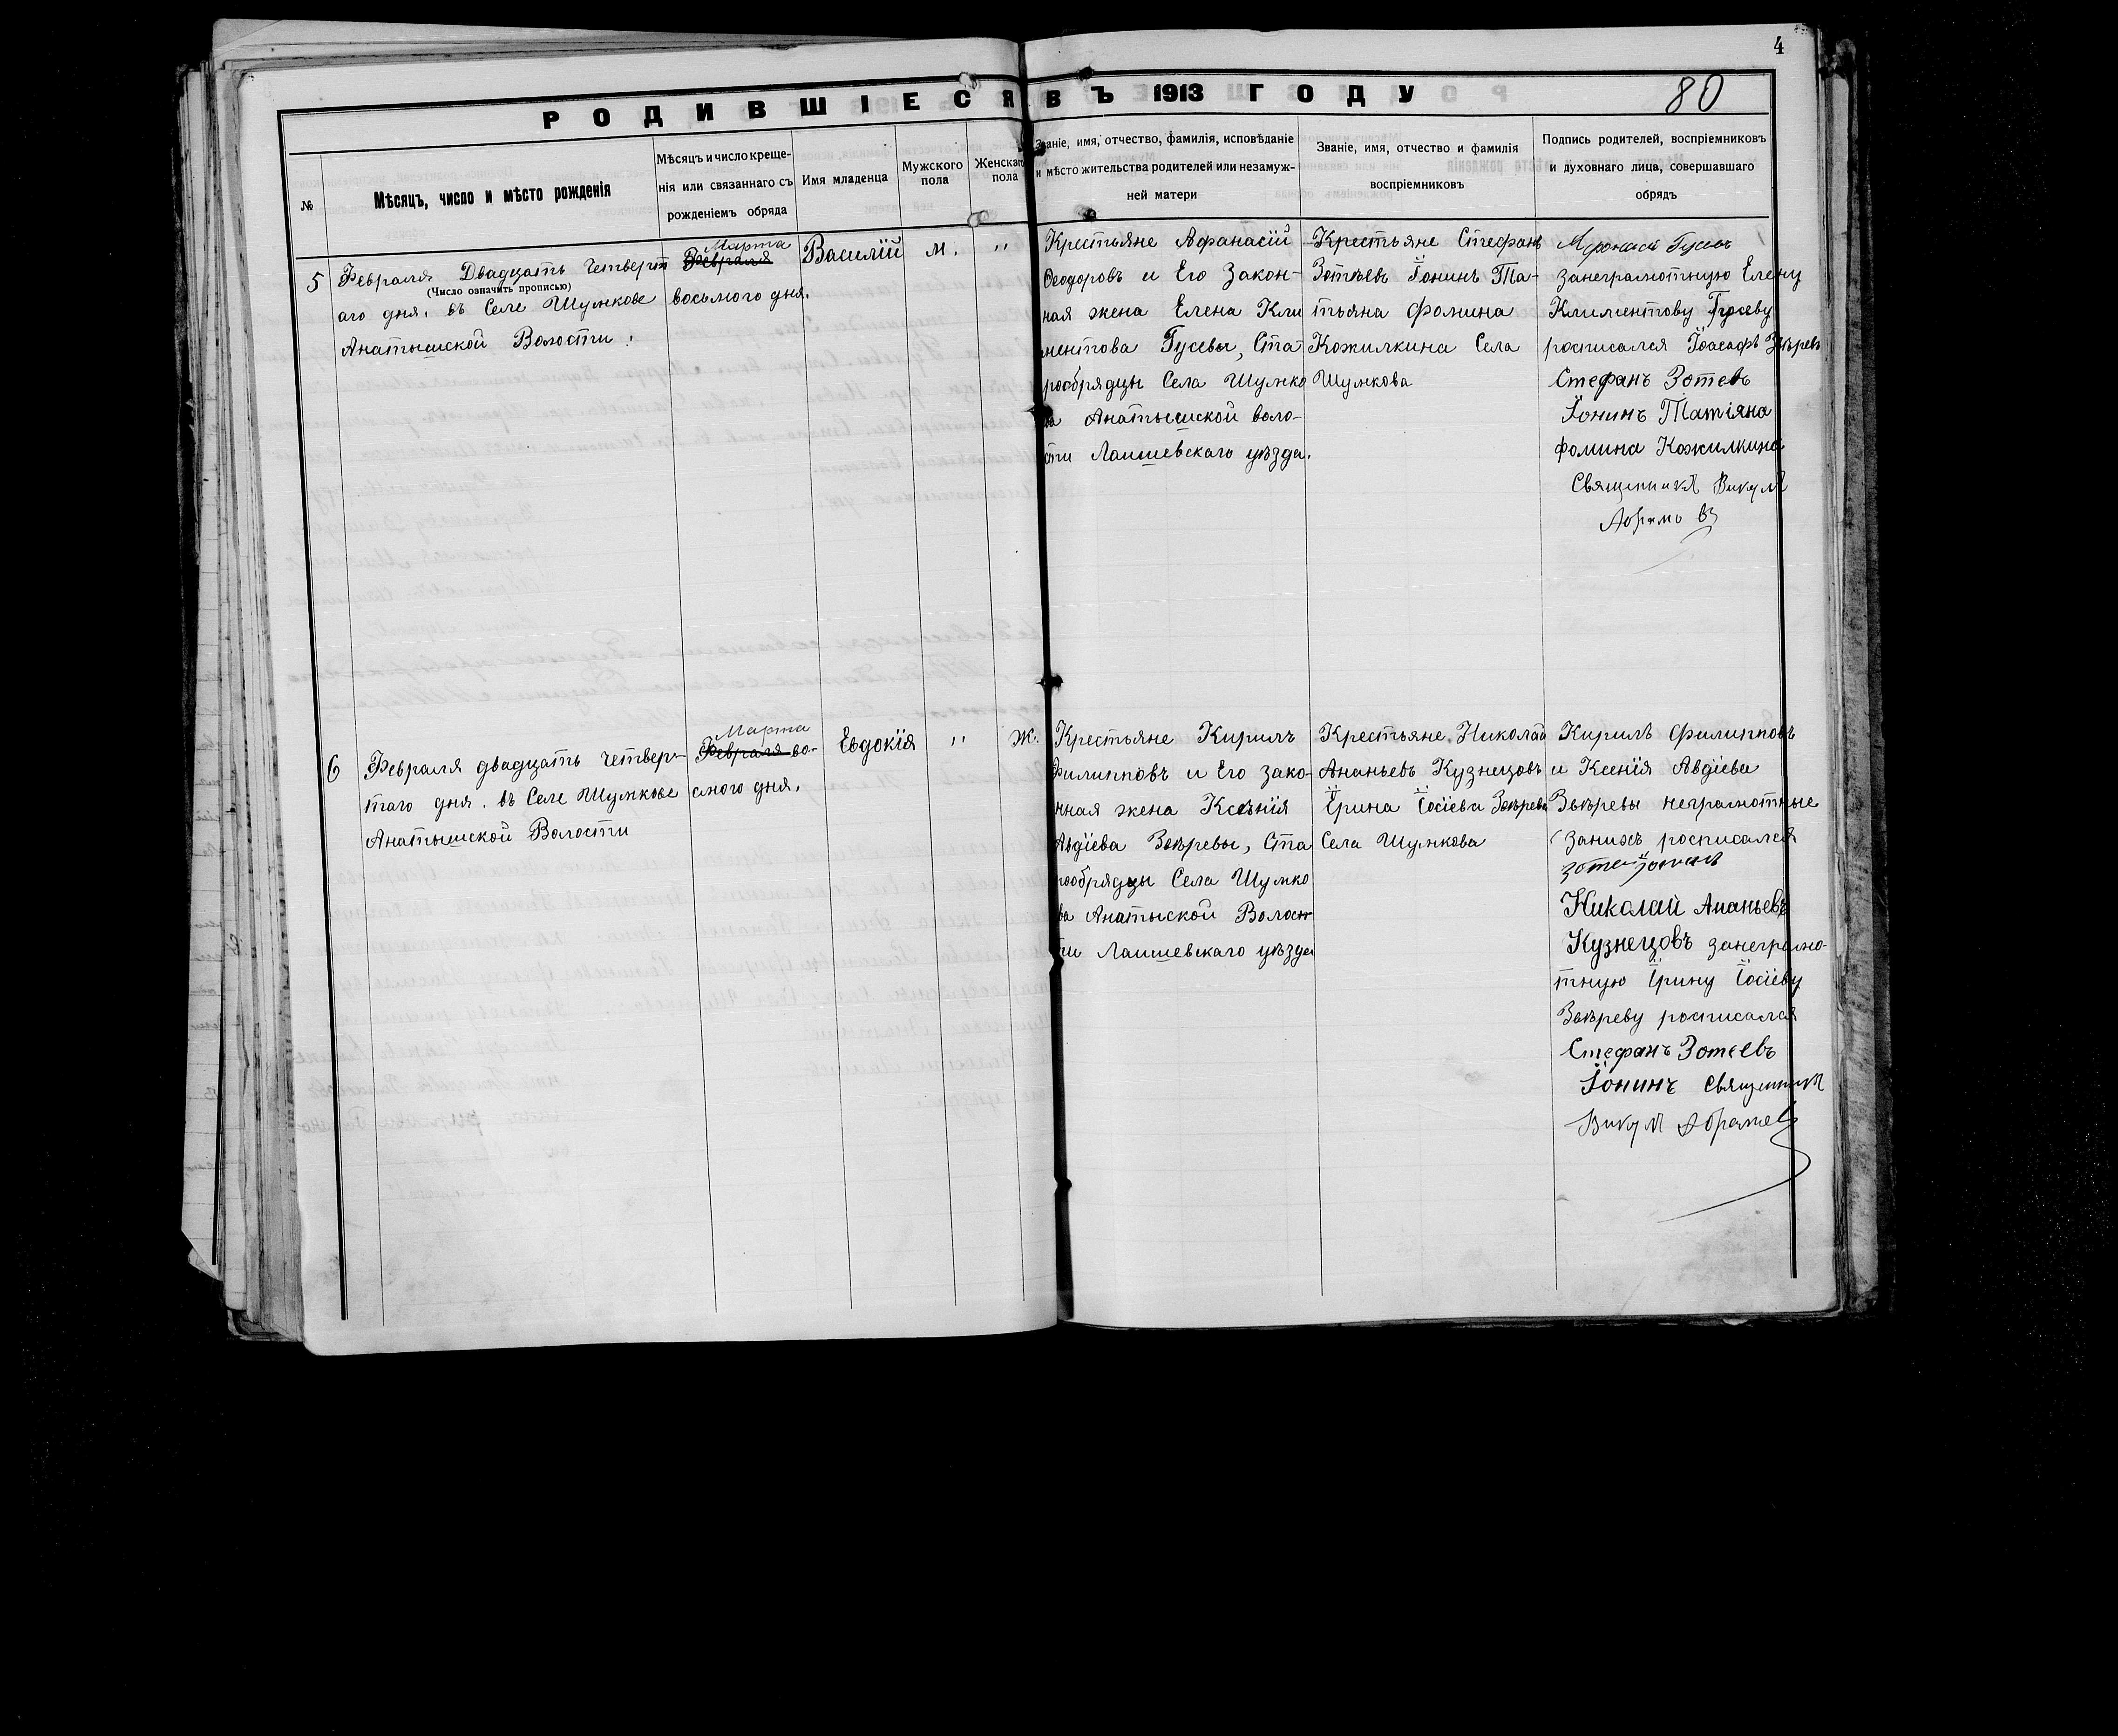 4
80
РОДИВШІЕСЯ ВЪ 1913 ГОДУ
№
Мѣсяцъ, число и мѣсто рожденія
Мѣсяцъ и число креще-
нія или связаннаго съ
рожденіемъ обряда
Имя младенца
Мужского
пола
Женскаго
пола
Званіе, имя, отчество, фамилія, исповѣданіе
и мѣсто жительства родителей или незамуж-
ней матери
Званіе, имя, отчество и фамилія
воспріемниковъ
Подпись родителей, воспріемниковъ
и духовнаго лица, совершавшаго
обрядъ
5
Февраля Двадцать Четверт
(Число означить прописью)
аго дня. въ Селе Шумкове
Анатышской Волости.
Марта
Февраля
восьмого дня.
Василій
м.
"
Крестьяне Афанасій
Феодоровъ и Его Закон-
ная жена Елена Кли
ментова Гусевы, Ста-
рообрядцы Села Шумко
ва Анатышской воло-
сти Лаишевскаго уѣзда.
Крестьяне Стефанъ
Зотѣевъ Іонинъ Та-
тьяна Фомина
Кожилкина Села
Шумкова
Афонасй Гусевъ
занеграмотную Елену
Климентову Гусеву
росписался Іоасафъ Звѣревъ
Стефанъ Зотевъ
Іонинъ Татіяна
Фомина Кожилкина
Священникъ Викулъ
6
Февраля двадцать четвер-
таго дня. въ Селе Шумкове
Анатышской Волости
Марта
Февраля во-
смого дня.
Евдокія
"
Ж.
Крестьяне Кирилъ
Филипповъ и Его зако-
нная жена Ксенія
Авдіева Звѣревы, Ста
рообрядцы Села Шумко
ва Анатыской Волос
ти Лаишевскаго уѣзда
Крестьяне Николай
Ананьевъ Кузнецовъ
Ірина Іосіева Звѣрева
Села Шумкова
Кирилъ Филипповъ
и Ксенія Авдіева
Звѣревы неграмотные
Занихъ росписался
Зотей Іонинъ
Николай Ананьевъ
Кузнецовъ занеграмо-
тную Ірину Іосіеву
Звѣреву росписался
Стефанъ Зотеевъ
Іонинъ Священникъ
Викулъ